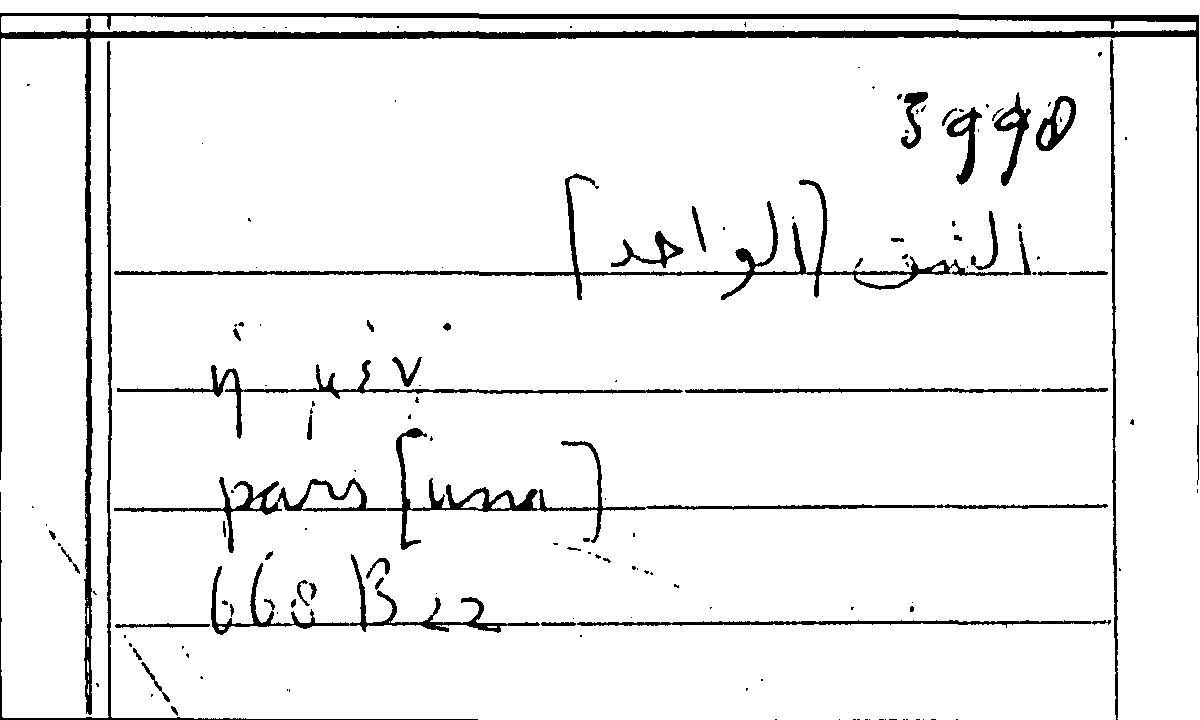 3990
الشق [الواحد]
ἡ μέν
pars [una]
668 B 22